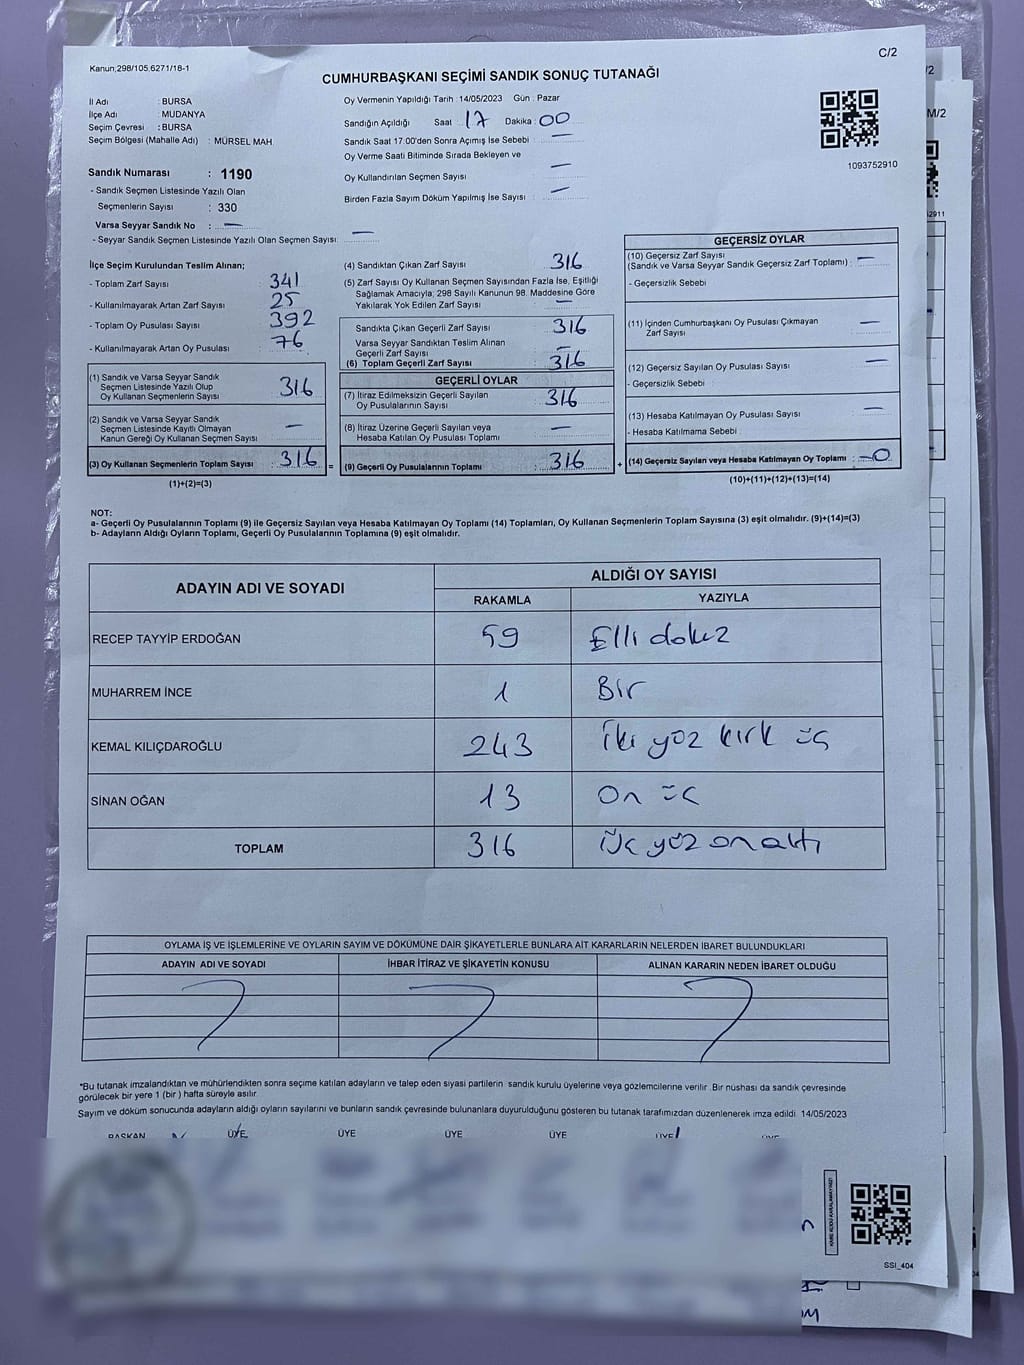 C/2
Kanun;298/105.6271/18-1
CUMHURBAŞKANI SEÇİMİ SANDIK SONUÇ TUTANAĞI
İl Adı : BURSA
İlçe Adı : MUDANYA
Seçim Çevresi : BURSA
Seçim Bölgesi (Mahalle Adı) : MÜRSEL MAH.
Oy Vermenin Yapıldığı Tarih : 14/05/2023 Gün : Pazar
Sandığın Açıldığı Saat : 17 Dakika : 00
Sandık Saat 17:00'den Sonra Açımış İse Sebebi : —
Oy Verme Saati Bitiminde Sırada Bekleyen ve
Oy Kullandırılan Seçmen Sayısı : —
Birden Fazla Sayım Döküm Yapılmış İse Sayısı : —
1093752910
Sandık Numarası : 1190
- Sandık Seçmen Listesinde Yazılı Olan
Seçmenlerin Sayısı : 330
Varsa Seyyar Sandık No : —
- Seyyar Sandık Seçmen Listesinde Yazılı Olan Seçmen Sayısı: —
İlçe Seçim Kurulundan Teslim Alınan;
- Toplam Zarf Sayısı : 341
- Kullanılmayarak Artan Zarf Sayısı : 25
- Toplam Oy Pusulası Sayısı : 392
- Kullanılmayarak Artan Oy Pusulası : 76
(1) Sandık ve Varsa Seyyar Sandık
Seçmen Listesinde Yazılı Olup
Oy Kullanan Seçmenlerin Sayısı : 316
(2) Sandık ve Varsa Seyyar Sandık
Seçmen Listesinde Kayıtlı Olmayan
Kanun Gereği Oy Kullanan Seçmen Sayısı : —
(3) Oy Kullanan Seçmenlerin Toplam Sayısı : 316 =
(1)+(2)=(3)
(4) Sandıktan Çıkan Zarf Sayısı : 316
(5) Zarf Sayısı Oy Kullanan Seçmen Sayısından Fazla İse, Eşitliği
Sağlamak Amacıyla; 298 Sayılı Kanunun 98. Maddesine Göre
Yakılarak Yok Edilen Zarf Sayısı : —
Sandıkta Çıkan Geçerli Zarf Sayısı : 316
Varsa Seyyar Sandıktan Teslim Alınan
Geçerli Zarf Sayısı : —
(6) Toplam Geçerli Zarf Sayısı : 316
GEÇERLİ OYLAR
(7) İtiraz Edilmeksizin Geçerli Sayılan
Oy Pusulalarının Sayısı : 316
(8) İtiraz Üzerine Geçerli Sayılan veya
Hesaba Katılan Oy Pusulası Toplamı : —
(9) Geçerli Oy Pusulalarının Toplamı : 316 +
GEÇERSİZ OYLAR
(10) Geçersiz Zarf Sayısı
(Sandık ve Varsa Seyyar Sandık Geçersiz Zarf Toplamı) : —
- Geçersizlik Sebebi
(11) İçinden Cumhurbaşkanı Oy Pusulası Çıkmayan
Zarf Sayısı : —
(12) Geçersiz Sayılan Oy Pusulası Sayısı : —
- Geçersizlik Sebebi
(13) Hesaba Katılmayan Oy Pusulası Sayısı : —
- Hesaba Katılmama Sebebi :
(14) Geçersiz Sayılan veya Hesaba Katılmayan Oy Toplamı : —0
(10)+(11)+(12)+(13)=(14)
NOT:
a- Geçerli Oy Pusulalarının Toplamı (9) ile Geçersiz Sayılan veya Hesaba Katılmayan Oy Toplamı (14) Toplamları, Oy Kullanan Seçmenlerin Toplam Sayısına (3) eşit olmalıdır. (9)+(14)=(3)
b- Adayların Aldığı Oyların Toplamı, Geçerli Oy Pusulalarının Toplamına (9) eşit olmalıdır.
ADAYIN ADI VE SOYADI
ALDIĞI OY SAYISI
RAKAMLA YAZIYLA
RECEP TAYYİP ERDOĞAN 59 Elli dokuz
MUHARREM İNCE 1 Bir
KEMAL KILIÇDAROĞLU 243 İki yüz kırk üç
SİNAN OĞAN 13 On üç
TOPLAM 316 Üç yüz on altı
OYLAMA İŞ VE İŞLEMLERİNE VE OYLARIN SAYIM VE DÖKÜMÜNE DAİR ŞİKAYETLERLE BUNLARA AİT KARARLARIN NELERDEN İBARET BULUNDUKLARI
ADAYIN ADI VE SOYADI İHBAR İTİRAZ VE ŞİKAYETİN KONUSU ALINAN KARARIN NEDEN İBARET OLDUĞU
*Bu tutanak imzalandıktan ve mühürlendikten sonra seçime katılan adayların ve talep eden siyasi partilerin sandık kurulu üyelerine veya gözlemcilerine verilir. Bir nüshası da sandık çevresinde
görülecek bir yere 1 (bir ) hafta süreyle asılır.
Sayım ve döküm sonucunda adayların aldığı oyların sayılarını ve bunların sandık çevresinde bulunanlara duyurulduğunu gösteren bu tutanak tarafımızdan düzenlenerek imza edildi. 14/05/2023
BAŞKAN ÜYE ÜYE ÜYE ÜYE ÜYE ÜYE
SSI_404